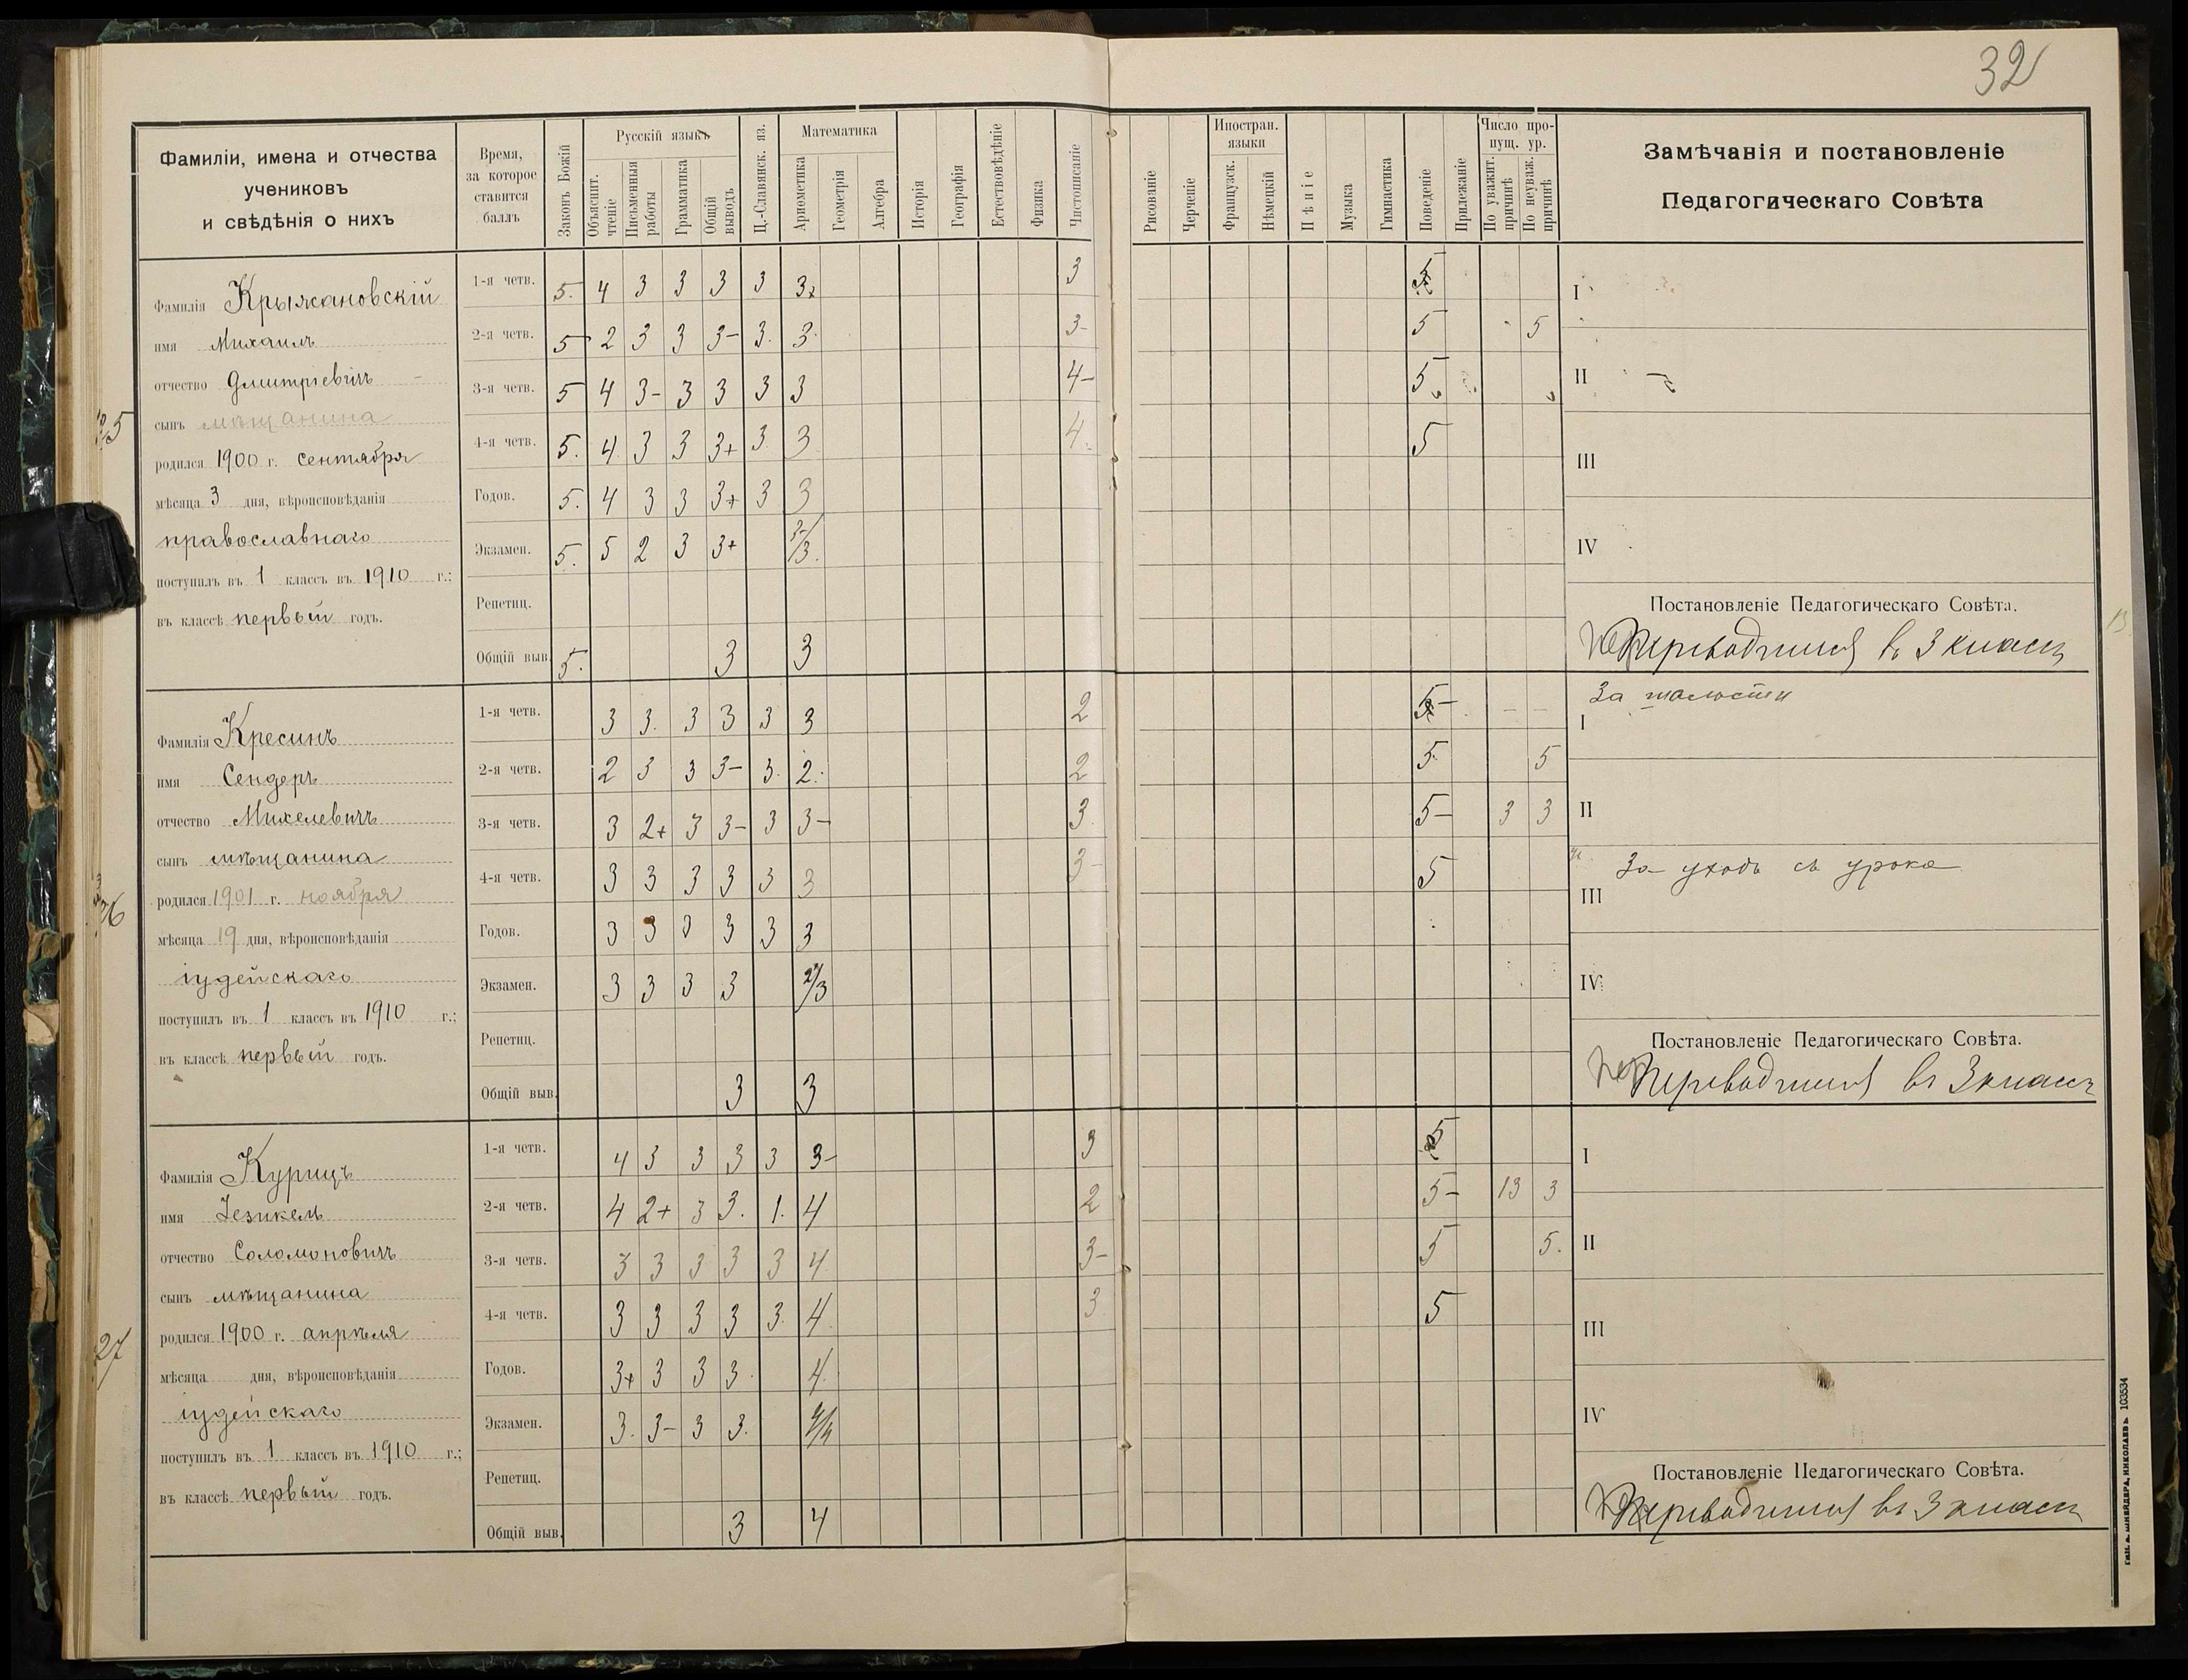 32
Фамиліи, имена и отчества
учениковъ
и свѣдѣнія о нихъ
Время,
за которое
ставится
баллъ
Законъ Божій
Русскій языкъ
Объяснит. чтеніе
Письменныя работы
Грамматика
Общій выводъ
Ц.-Славянск. яз.
Математика
Ариѳметика
Геометрія
Алгебра
Исторія
Географія
Естествовѣдѣніе
Физика
Чистописаніе
Рисованіе
Черченіе
Иностран. языки
Французск.
Нѣмецкій
Пѣніе
Музыка
Гимнастика
Поведеніе
Прилежаніе
Число пропущ. ур.
По уважит. причинѣ
По неуваж. причинѣ
Замѣчанія и постановленіе
Педагогическаго Совѣта
25
Фамилія Крыжановскій
имя Михаилъ
отчество Дмитріевичъ
сынъ мѣщанина
родился 1900 г. сентября
мѣсяца 3 дня, вѣроисповѣданія
православнаго
поступилъ въ 1 классъ въ 1910 г.;
въ классѣ первый годъ.
1-я четв. 5. 4 3 3 3 3 3 3 5
2-я четв. 5 2 3 3 3- 3. 3. 3- 5 5
3-я четв. 5 4 3- 3 3 3 3 4- 5
4-я четв. 5. 4 3 3 3+ 3. 3 4 5
Годов. 5. 4 3 3 3+ 3 3
Экзамен. 5. 5 2 3 3+ 3-/3.
Репетиц.
Общій выв. 5. 3 3
I
II
III
IV
Постановленіе Педагогическаго Совѣта.
Переводится въ 3 классъ
26
Фамилія Кресинъ
имя Сендеръ
отчество Михелевичъ
сынъ мѣщанина
родился 1901 г. ноября
мѣсяца 19 дня, вѣроисповѣданія
іудейскаго
поступилъ въ 1 классъ въ 1910 г.;
въ классѣ первый годъ.
1-я четв. 3 3. 3 3 3 3 2 5- — —
2-я четв. 2 3 3 3- 3. 2. 2 5 5
3-я четв. 3 2+ 3 3- 3 3- 3 5- 3 3
4-я четв. 3 3 3 3 3 3 3- 5
Годов. 3 3 3 3 3 3
Экзамен. 3 3 3 3 2/3
Репетиц.
Общій выв. 3 3
За шалости
I
II
За уходъ съ урока
III
IV
Постановленіе Педагогическаго Совѣта.
Переводится въ 3 классъ
27
Фамилія Курицъ
имя Іезикель
отчество Соломоновичъ
сынъ мѣщанина
родился 1900 г. апрѣля
мѣсяца дня, вѣроисповѣданія
іудейскаго
поступилъ въ 1 классъ въ 1910 г.;
въ классѣ первый годъ.
1-я четв. 4 3 3 3 3 3- 3 5
2-я четв. 4 2+ 3 3. 1. 4 2 5- 13 3
3-я четв. 3 3 3 3 3 4 3- 5 5.
4-я четв. 3 3 3 3 3. 4 3 5
Годов. 3+ 3 3 3 4
Экзамен. 3. 3- 3 3. 4/4
Репетиц.
Общій выв. 3 4
I
II
III
IV
Постановленіе Педагогическаго Совѣта.
Переводится въ 3 классъ
13
ШНЕЙДЕРА, НИКОЛАЕВЪ 103534